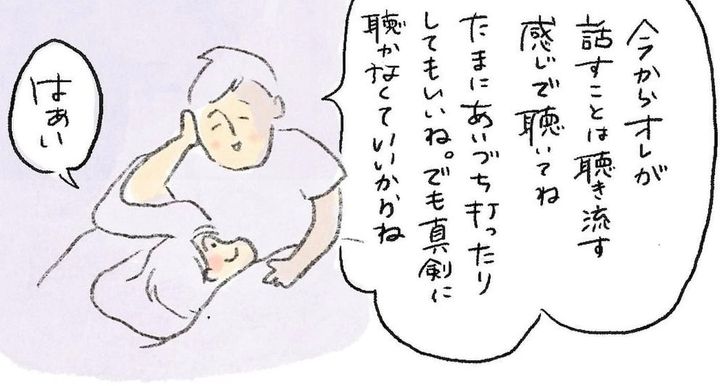 今からオレが
話すことは聴き流す
感じで聴いてね
たまにあいづち打ったり
してもいいね。でも真剣に
聴かなくていいからね
はぁい